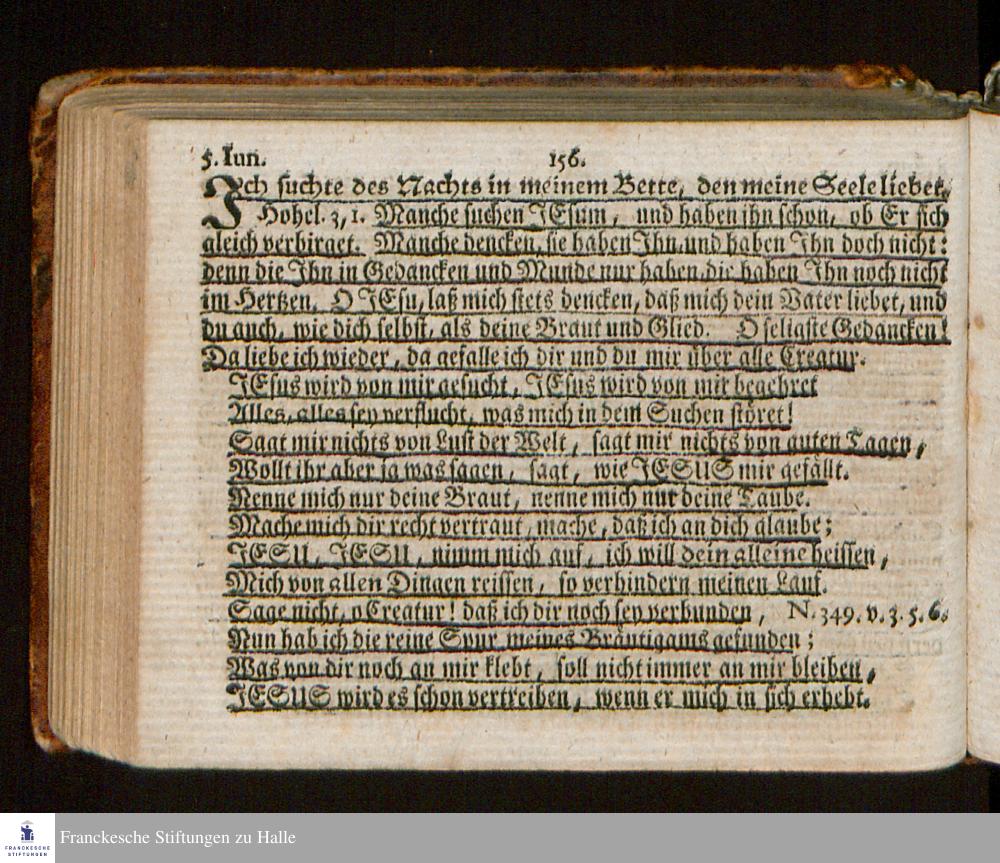 5. Iun. 156.
Ich suchte des Nachts in meinem Bette, den meine Seele liebet.
Hohel. 3, 1. Manche suchen JEsum, und haben ihn schon, ob Er sich
gleich verbirget. Manche dencken, sie haben Ihn, und haben Ihn doch nicht:
denn die Ihn in Gedancken und Munde nur haben, die haben Ihn noch nicht
im Hertzen. O JEsu, laß mich stets dencken, daß mich dein Vater liebet, und
du auch, wie dich selbst, als deine Braut und Glied. O seligste Gedancken!
Da liebe ich wieder, da gefalle ich dir und du mir über alle Creatur.
JEsus wird von mir gesucht, JEsus wird von mir begehret
Alles, alles sey verflucht, was mich in dem Suchen störet!
Sagt mir nichts von Lust der Welt, sagt mir nichts von guten Tagen,
Wollt ihr aber ja was sagen, sagt, wie JESUS mir gefällt.
Nenne mich nur deine Braut, nenne mich nur deine Taube.
Mache mich dir recht vertraut, mache, daß ich an dich glaube;
JESU, JESU, nimm mich auf, ich will dein alleine heissen,
Mich von allen Dingen reissen, so verhindern meinen Lauf.
Sage nicht, o Creatur! daß ich dir noch sey verbunden, N. 349. v. 3. 5. 6.
Nun hab ich die reine Spur meines Bräutigams gefunden;
Was von dir noch an mir klebt, soll nicht immer an mir bleiben,
JESUS wird es schon vertreiben, wenn er mich in sich erhebt.
FRANCKESCHE
STIFTUNGEN
Franckesche Stiftungen zu Halle